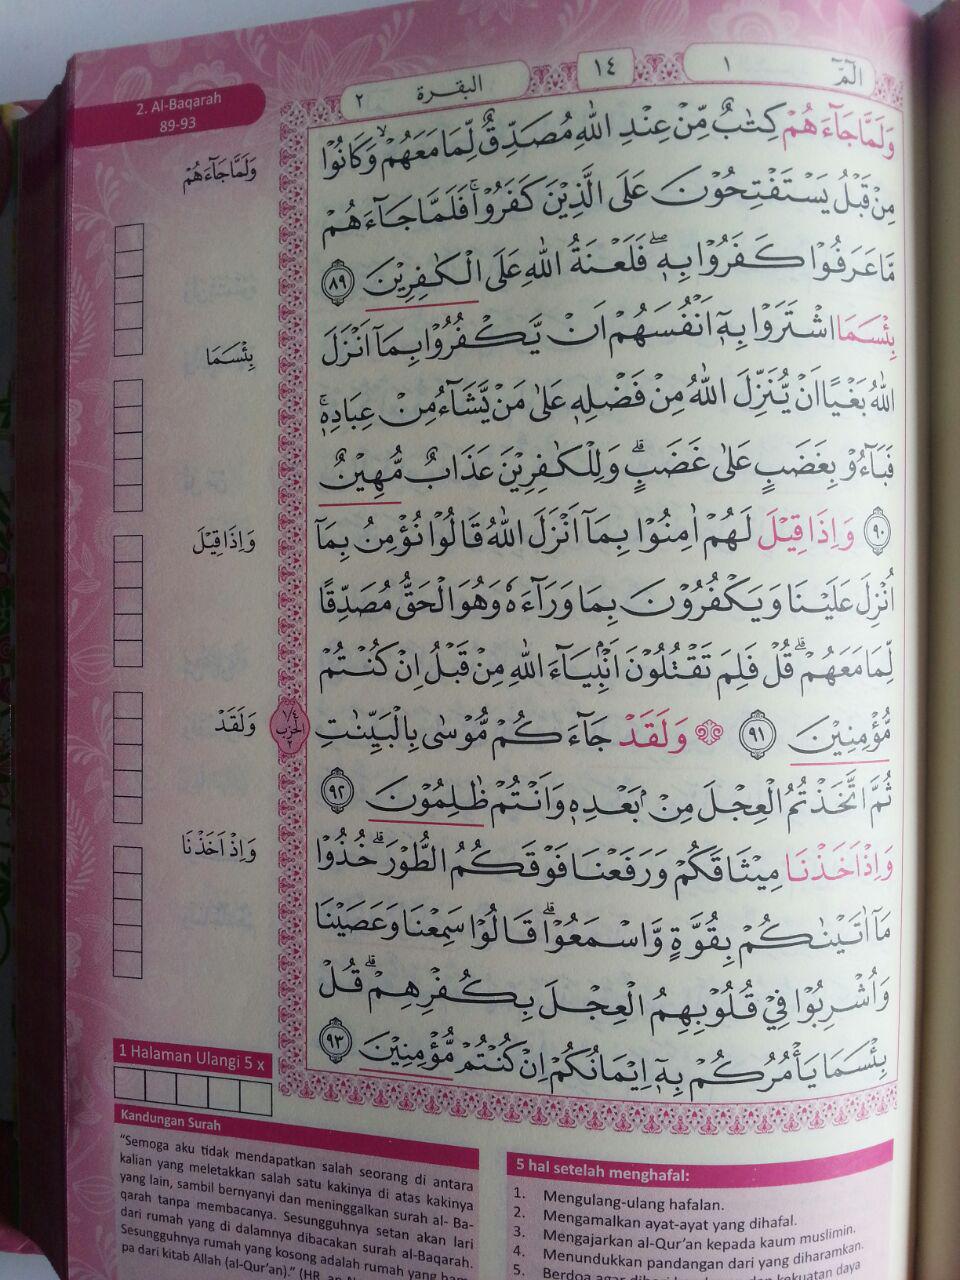 الٓمّٓ ١
١٤
البقرة ٢
2. Al-Baqarah
89-93
وَلَمَّا جَاۤءَهُمْ كِتٰبٌ مِّنْ عِنْدِ اللّٰهِ مُصَدِّقٌ لِّمَا مَعَهُمْۙ وَكَانُوْا
مِنْ قَبْلُ يَسْتَفْتِحُوْنَ عَلَى الَّذِيْنَ كَفَرُوْاۚ فَلَمَّا جَاۤءَهُمْ
مَّا عَرَفُوْا كَفَرُوْا بِهٖۖ فَلَعْنَةُ اللّٰهِ عَلَى الْكٰفِرِيْنَ ٨٩
بِئْسَمَا اشْتَرَوْا بِهٖٓ اَنْفُسَهُمْ اَنْ يَّكْفُرُوْا بِمَآ اَنْزَلَ
اللّٰهُ بَغْيًا اَنْ يُّنَزِّلَ اللّٰهُ مِنْ فَضْلِهٖ عَلٰى مَنْ يَّشَاۤءُ مِنْ عِبَادِهٖۚ
فَبَاۤءُوْ بِغَضَبٍ عَلٰى غَضَبٍۗ وَلِلْكٰفِرِيْنَ عَذَابٌ مُّهِيْنٌ
٩٠ وَاِذَا قِيْلَ لَهُمْ اٰمِنُوْا بِمَآ اَنْزَلَ اللّٰهُ قَالُوْا نُؤْمِنُ بِمَآ
اُنْزِلَ عَلَيْنَا وَيَكْفُرُوْنَ بِمَا وَرَاۤءَهٗ وَهُوَ الْحَقُّ مُصَدِّقًا
لِّمَا مَعَهُمْۗ قُلْ فَلِمَ تَقْتُلُوْنَ اَنْۢبِيَاۤءَ اللّٰهِ مِنْ قَبْلُ اِنْ كُنْتُمْ
مُّؤْمِنِيْنَ ٩١ ۞ وَلَقَدْ جَاۤءَكُمْ مُّوْسٰى بِالْبَيِّنٰتِ
ثُمَّ اتَّخَذْتُمُ الْعِجْلَ مِنْۢ بَعْدِهٖ وَاَنْتُمْ ظٰلِمُوْنَ ٩٢
وَاِذْ اَخَذْنَا مِيْثَاقَكُمْ وَرَفَعْنَا فَوْقَكُمُ الطُّوْرَۗ خُذُوْا
مَآ اٰتَيْنٰكُمْ بِقُوَّةٍ وَّاسْمَعُوْاۗ قَالُوْا سَمِعْنَا وَعَصَيْنَا
وَاُشْرِبُوْا فِيْ قُلُوْبِهِمُ الْعِجْلَ بِكُفْرِهِمْۗ قُلْ
بِئْسَمَا يَأْمُرُكُمْ بِهٖٓ اِيْمَانُكُمْ اِنْ كُنْتُمْ مُّؤْمِنِيْنَ ٩٣
وَلَمَّا جَاۤءَهُمْ
بِئْسَمَا
وَاِذَا قِيْلَ
وَلَقَدْ
وَاِذْ اَخَذْنَا
١/٤
الحزب
٢
1 Halaman Ulangi 5 x
Kandungan Surah
"Semoga aku tidak mendapatkan salah seorang di antara
kalian yang meletakkan salah satu kakinya di atas kakinya
yang lain, sambil bernyanyi dan meninggalkan surah al- Ba-
qarah tanpa membacanya. Sesungguhnya setan akan lari
dari rumah yang di dalamnya dibacakan surah al-Baqarah.
Sesungguhnya rumah yang kosong adalah rumah yang ham-
pa dari kitab Allah (al-Qur'an)." (HR.
5 hal setelah menghafal:
1. Mengulang-ulang hafalan.
2. Mengamalkan ayat-ayat yang dihafal.
3. Mengajarkan al-Qur'an kepada kaum muslimin.
4. Menundukkan pandangan dari yang diharamkan.
5. Berdoa agar diberi kekuatan daya